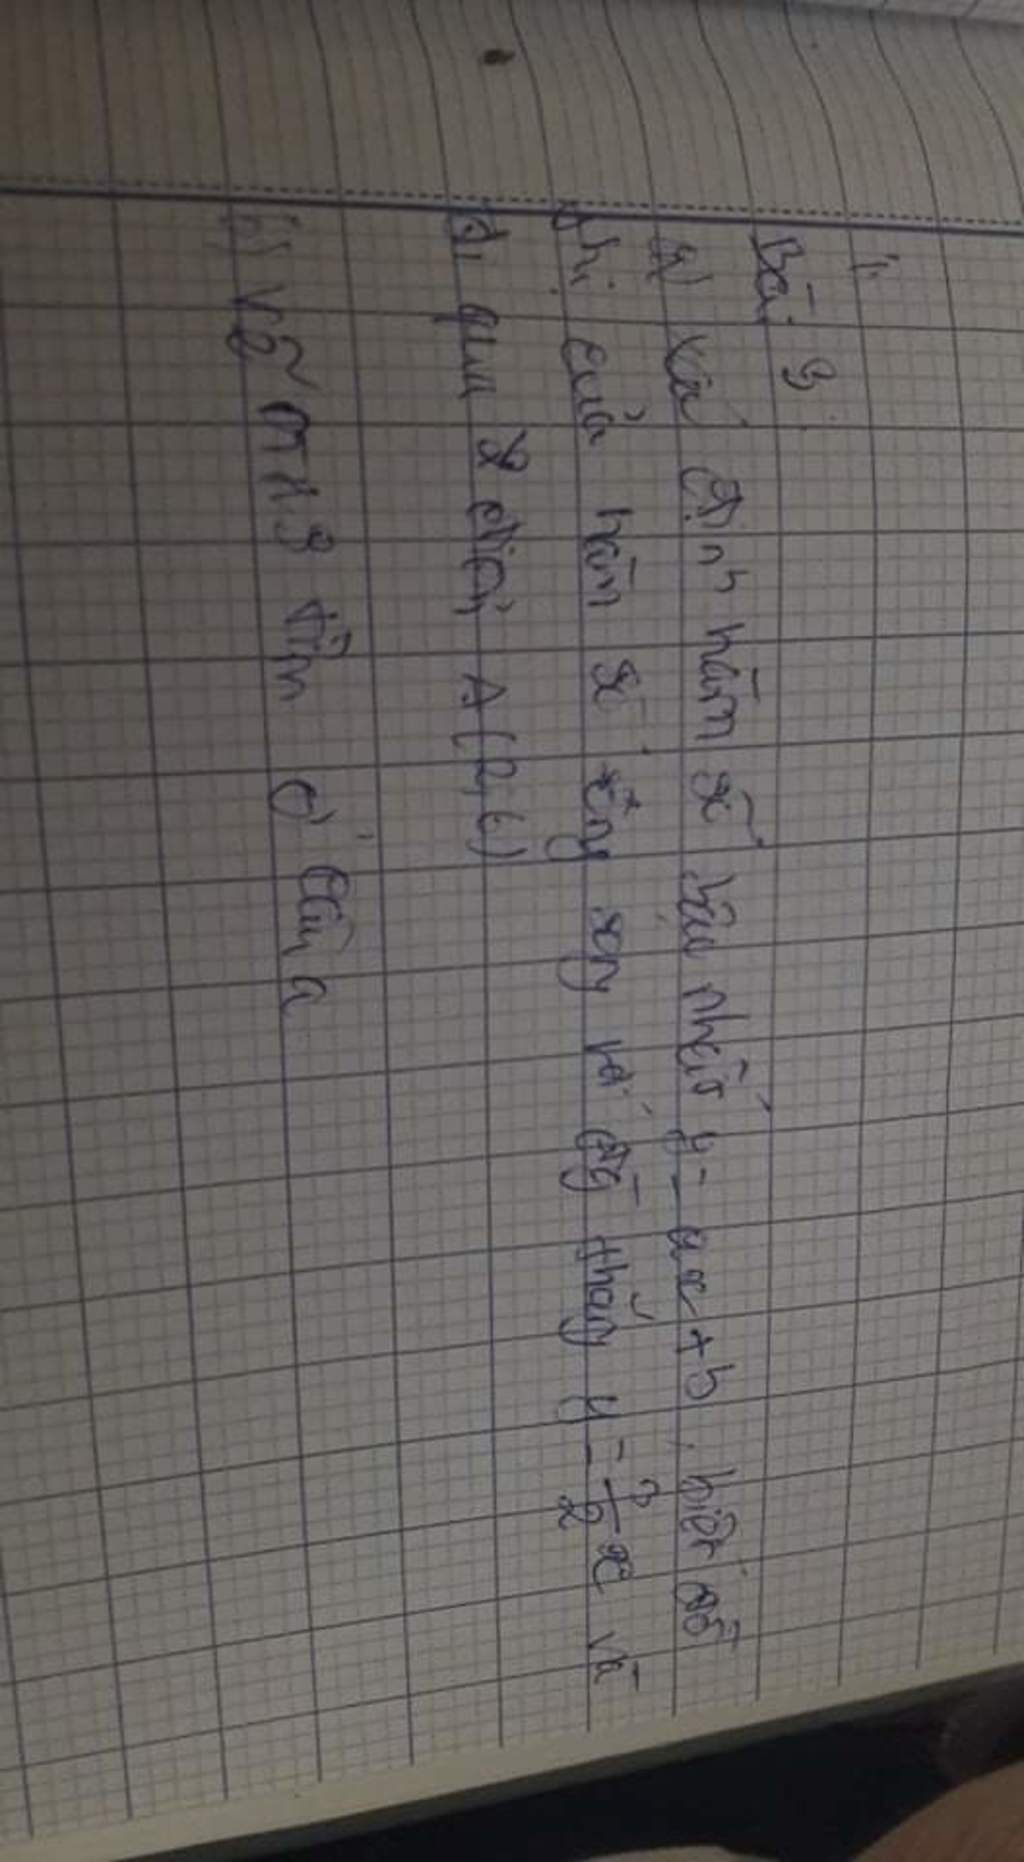 1.
Bài 3
a) Xác định hàm số bậu nhất y = ax + b, biết đồ
thị của hàm số song song với đg thẳng y = 3/2 x và
đi qua 2 điểm A(2;6)
b) Vẽ tìm ở câu a